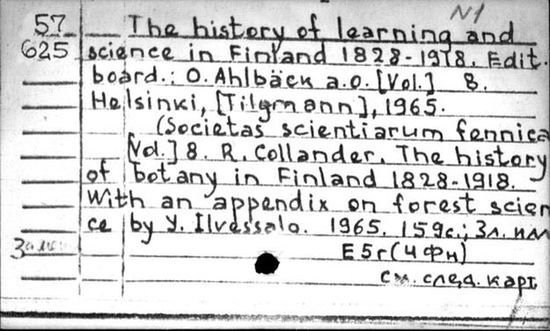 N1
57 The history of learning and
625 science in Finland 1828-1918. Edit.
board.: O. Ahlbäck a.o. [Vol.] 8.
Helsinki, [Tilgmann], 1965.
(Societas scientiarum fennica
[Vol.] 8. R. Collander. The history
of botany in Finland 1828-1918.
With an appendix on forest scien
ce by Y. Ilvessalo. 1965. 159с.; 3л. илл
Е5г(4Фн)
см. след. карт